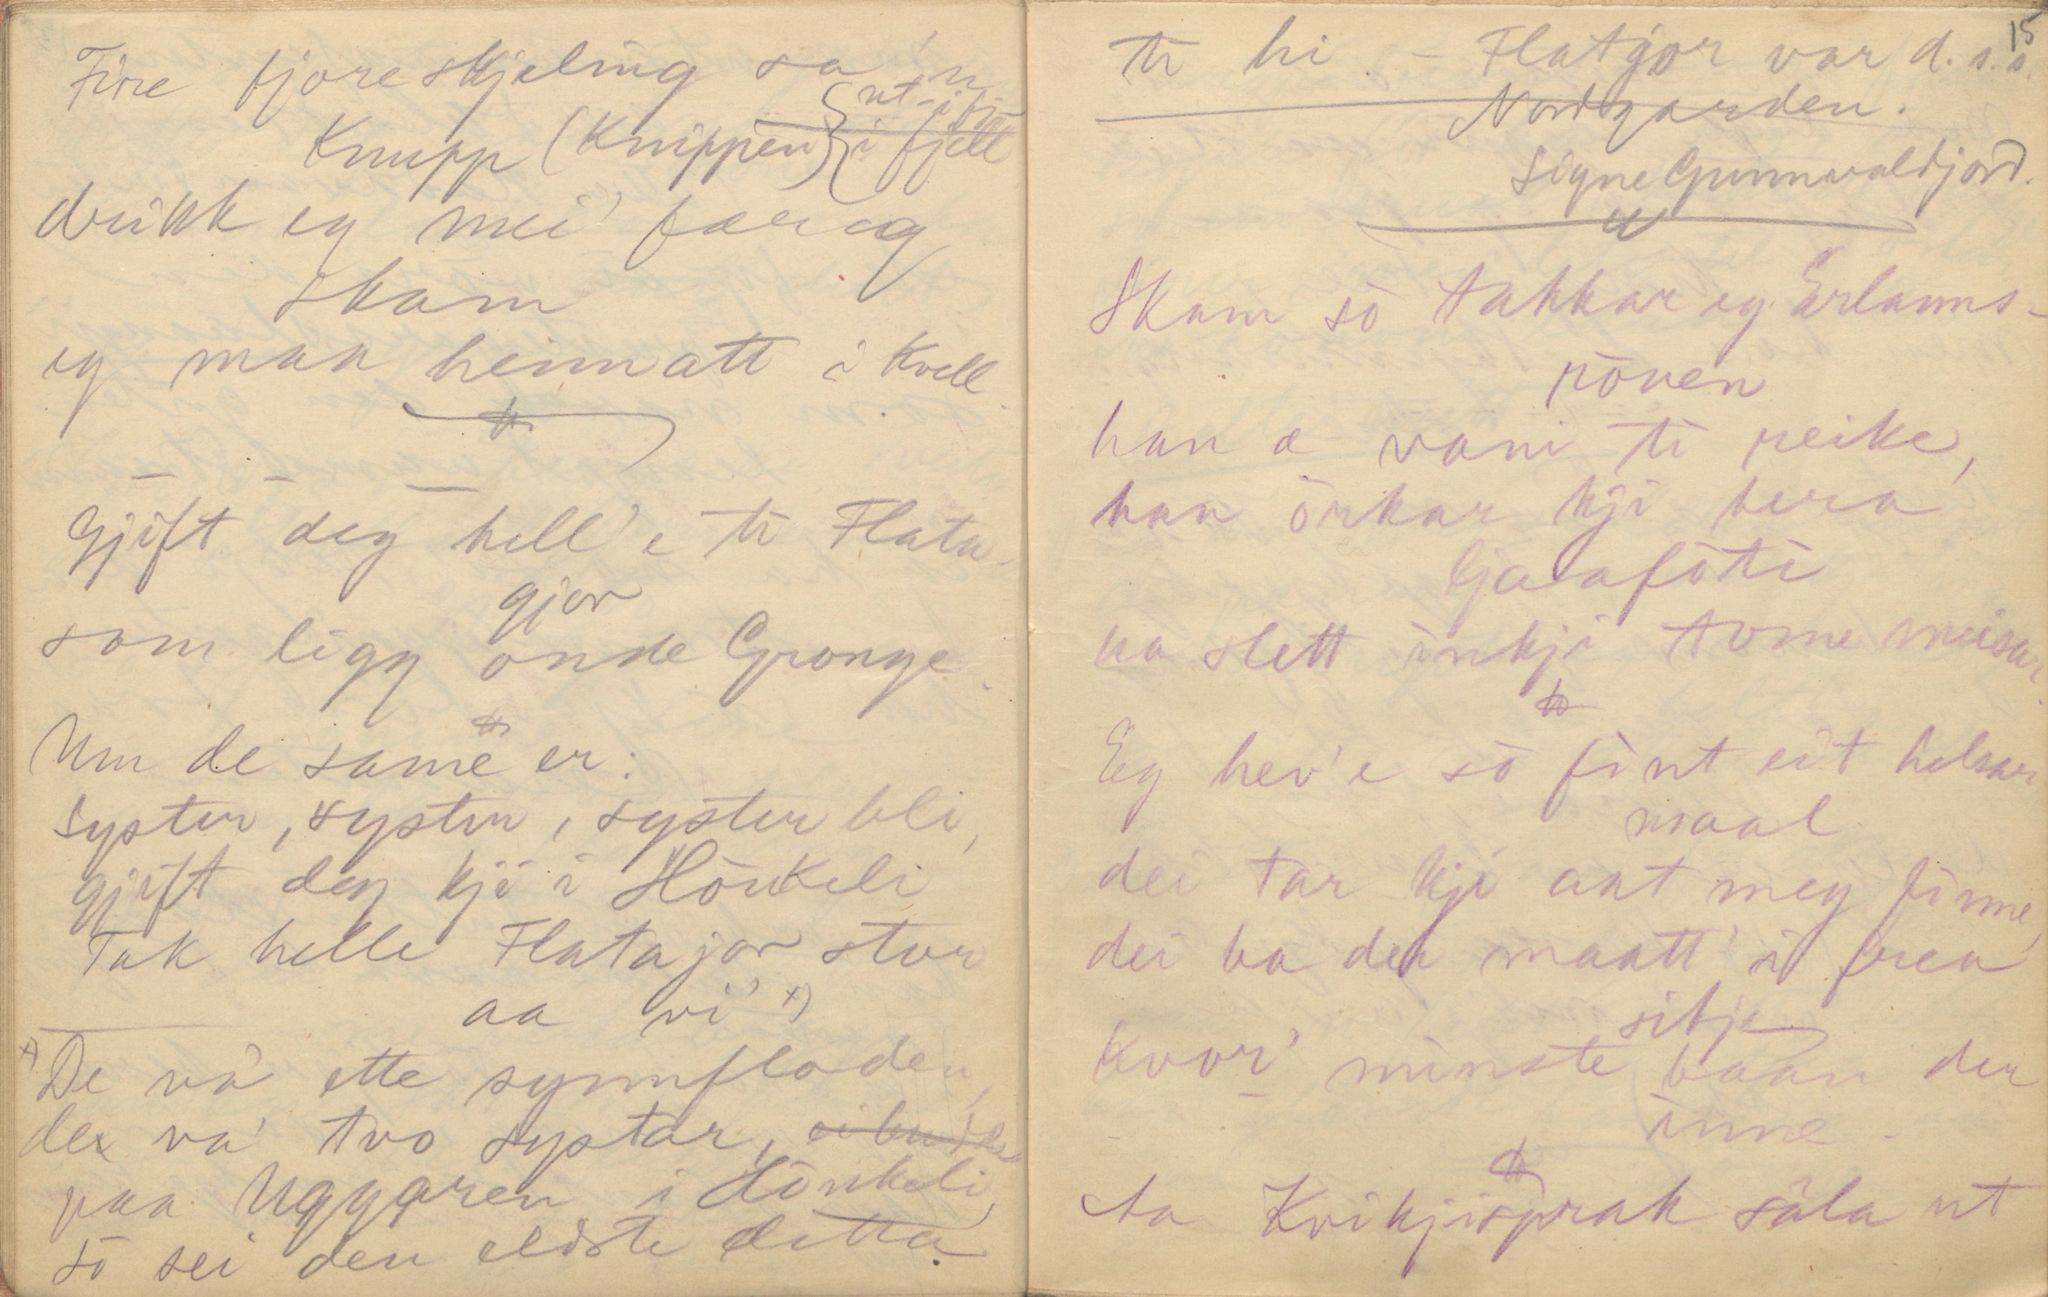 Fire fjoreskjeling sa en
Knupp (Knippen) { ut-i fj
i fjell
drikk eg mei' faer og
skam
eg maa heimatt i Kvell.
Gjift deg hell'e ti Flata-
gjor
som ligg onde Gronge.
Um de same er:
Syster, syster, syster bli,
gjift deg kji i Hönkeli
Tak helle Flatajor stor
aa vi' x)
x) De va' ette synnfloden,
de va' tvo systar,
paa Uggaren i Hönkeli,
so sei den eldste detta.
15
ti hi. - Flatgjor var d. s. s.
Nordgarden.
Signe Gunnvaldjord.
Skam so takkar eg Erlanns-
röven
han æ vani ti reike,
han örkar kji bera
Galafoti
ha slett inkji tome meisar.
Eg hev'e so fint eit helsar
maal
dei tar kji aat meg finne,
dei ha den maatt' i frea
sitje
kvor' minste baan der
inne.
Aa Kvikjisprak såla ut